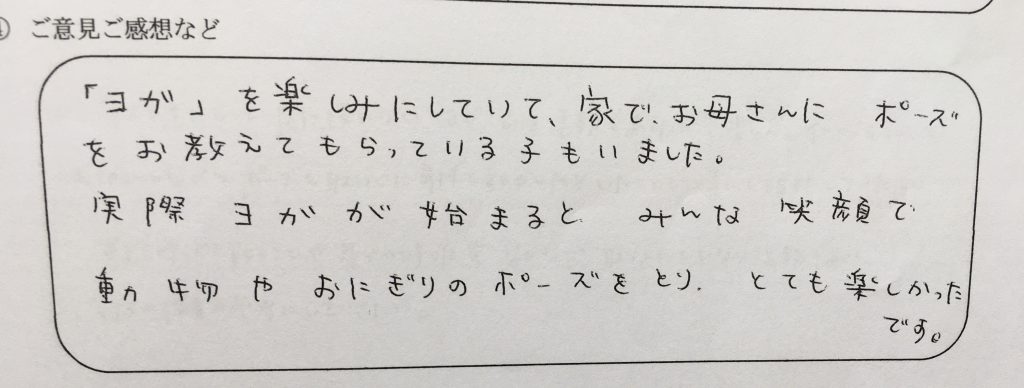 ご意見ご感想など
「ヨガ」を楽しみにしていて、家で、お母さんに ポーズ
をお教えてもらっている子もいました。
実際 ヨガが始まると みんな 笑顔で
動物や おにぎりのポーズをとり、とても楽しかった
です。